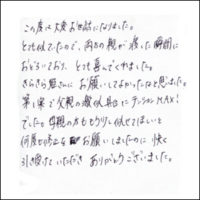 この度は大変お世話になりました。
とても似ていたので、両方の親が渡した瞬間に
おどろいており、とても喜んでくれました。
きらきら絵さんにお願いしてよかったなと思いました。
第1案で父親の激似具合にテンションMAX!
でした。母親の方ももう少し似せてほしいと
何度も修正をお願いしましたのに快く
引き受けていただきありがとうございました。